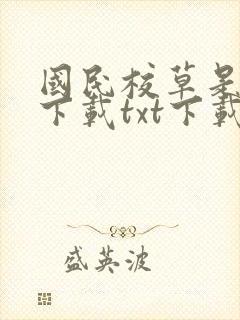 國民校草是
下載txt下載
盛英波